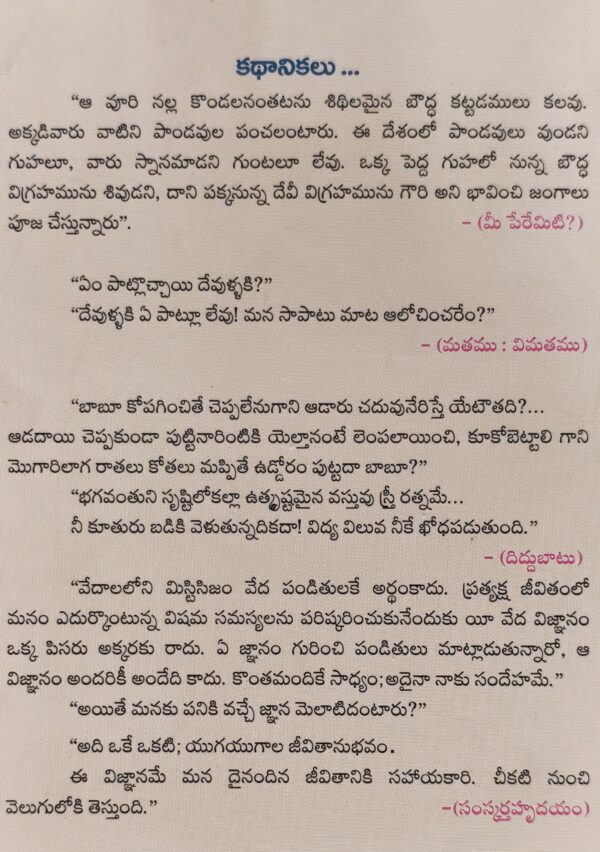 కథానికలు ...
“ఆ వూరి నల్ల కొండలనంతటను శిథిలమైన బౌద్ధ కట్టడములు కలవు.
అక్కడివారు వాటిని పాండవుల పంచలంటారు. ఈ దేశంలో పాండవులు వుండని
గుహలూ, వారు స్నానమాడని గుంటలూ లేవు. ఒక్క పెద్ద గుహలో నున్న బౌద్ధ
విగ్రహమును శివుడని, దాని పక్కనున్న దేవీ విగ్రహమును గౌరి అని భావించి జంగాలు
పూజ చేస్తున్నారు”. – (మీ పేరేమిటి?)
“ఏం పాట్లొచ్చాయి దేవుళ్ళకి?”
“దేవుళ్ళకి ఏ పాట్లూ లేవు! మన సాపాటు మాట ఆలోచించరేం?”
– (మతము : విమతము)
“బాబూ కోపగించితే చెప్పలేనుగాని ఆడారు చదువునేరిస్తే యేటౌతది?...
ఆడదాయి చెప్పకుండా పుట్టినారింటికి యెల్తానంటే లెంపలాయించి, కూకోబెట్టాలి గాని
మొగారిలాగ రాతలు కోతలు మప్పితే ఉడ్డోరం పుట్టదా బాబూ?”
“భగవంతుని సృష్టిలోకల్లా ఉత్కృష్టమైన వస్తువు స్త్రీ రత్నమే...
నీ కూతురు బడికి వెళుతున్నదికదా! విద్య విలువ నీకే ఖోధపడుతుంది.”
– (దిద్దుబాటు)
“వేదాలలోని మిస్టిసిజం వేద పండితులకే అర్థంకాదు. ప్రత్యక్ష జీవితంలో
మనం ఎదుర్కొంటున్న విషమ సమస్యలను పరిష్కరించుకునేందుకు యీ వేద విజ్ఞానం
ఒక్క పిసరు అక్కరకు రాదు. ఏ జ్ఞానం గురించి పండితులు మాట్లాడుతున్నారో, ఆ
విజ్ఞానం అందరికీ అందేది కాదు. కొంతమందికే సాధ్యం;అదైనా నాకు సందేహమే.”
“అయితే మనకు పనికి వచ్చే జ్ఞాన మెలాటిదంటారు?”
“అది ఒకే ఒకటి; యుగయుగాల జీవితానుభవం.
ఈ విజ్ఞానమే మన దైనందిన జీవితానికి సహాయకారి. చీకటి నుంచి
వెలుగులోకి తెస్తుంది.” –(సంస్కర్తహృదయం)